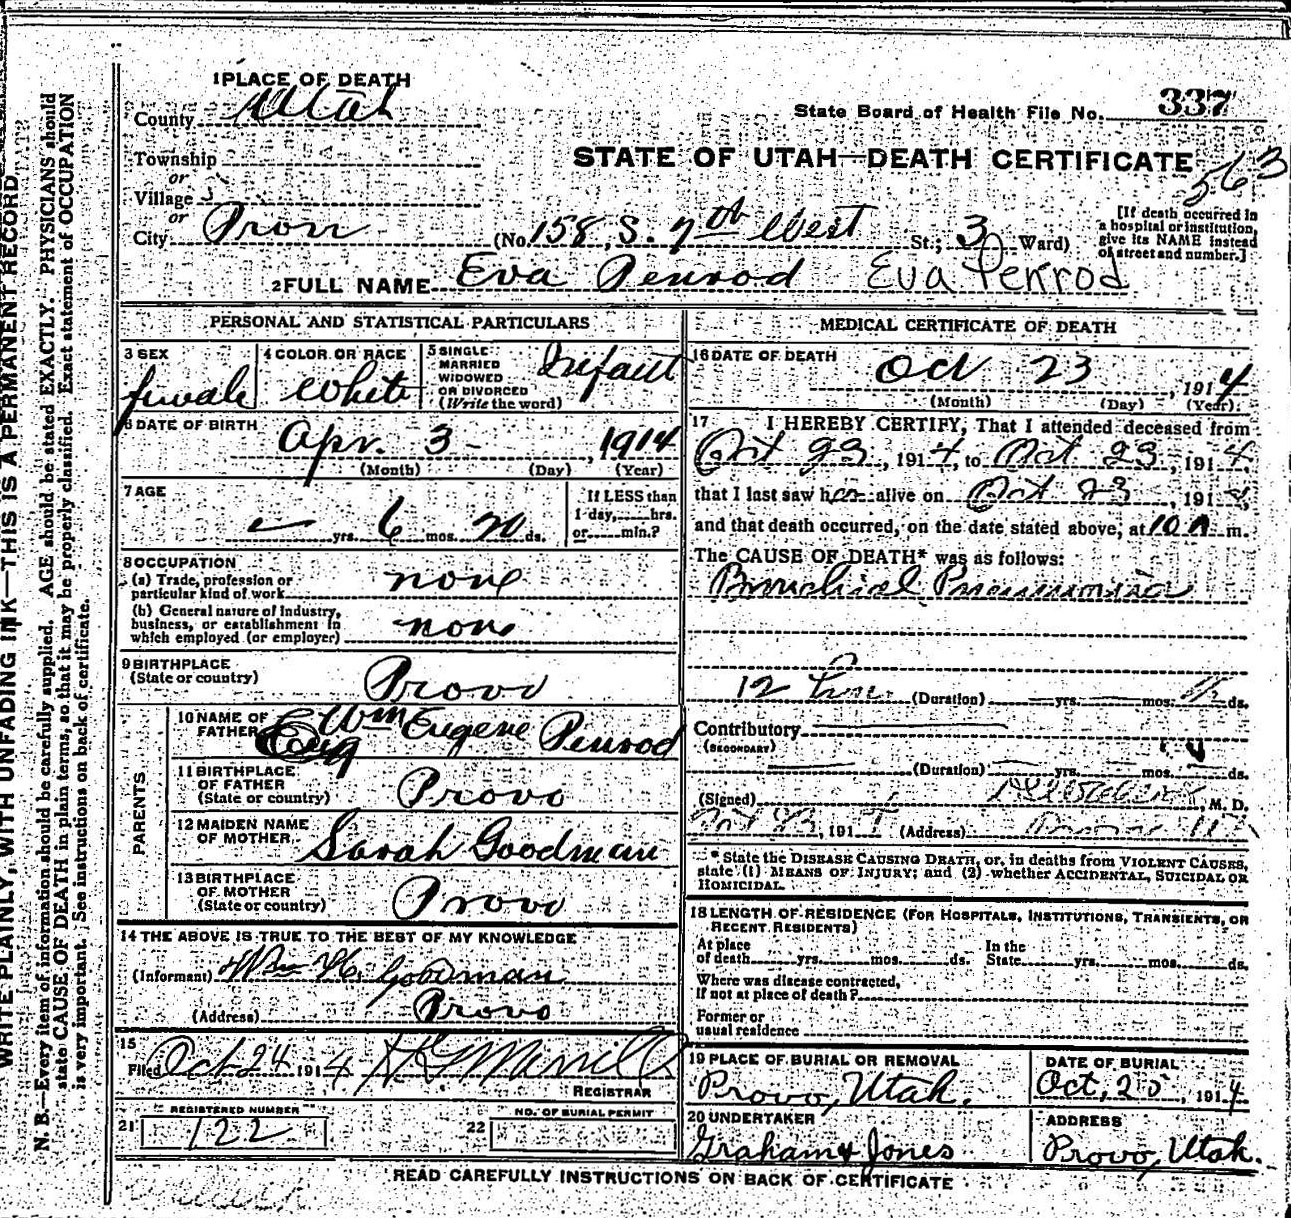 WRITE PLAINLY, WITH UNFADING INK—THIS IS A PERMANENT RECORD
N. B.—Every item of information should be carefully supplied. AGE should be stated EXACTLY. PHYSICIANS should
state CAUSE OF DEATH in plain terms, so that it may be properly classified. Exact statement of OCCUPATION
is very important. See instructions on back of certificate.
1 PLACE OF DEATH
County Utah
State Board of Health File No. 337
Township
or
STATE OF UTAH—DEATH CERTIFICATE
563
Village
or
City Provo (No. 158, S. 7th West St.; 3 Ward)
[If death occurred in
a hospital or institution,
give its NAME instead
of street and number.]
2 FULL NAME Eva Penrod Eva Penrod
PERSONAL AND STATISTICAL PARTICULARS
3 SEX
female
4 COLOR OR RACE
White
5 SINGLE
MARRIED
WIDOWED
OR DIVORCED
(Write the word)
Infant
6 DATE OF BIRTH
Apr. 3 - , 1914
(Month) (Day) (Year)
7 AGE
— yrs. 6 mos. 20 ds.
If LESS than
1 day, hrs.
or min.?
8 OCCUPATION
(a) Trade, profession or
particular kind of work none
(b) General nature of industry,
business, or establishment in
which employed (or employer) none
9 BIRTHPLACE
(State or country) Provo
PARENTS
10 NAME OF
FATHER Wm Eugene Penrod
11 BIRTHPLACE
OF FATHER
(State or country) Provo
12 MAIDEN NAME
OF MOTHER Sarah Goodman
13 BIRTHPLACE
OF MOTHER
(State or country) Provo
14 THE ABOVE IS TRUE TO THE BEST OF MY KNOWLEDGE
(Informant) Wm H. Goodman
(Address) Provo
15
Filed Oct 24 1914 Merrill
REGISTRAR
REGISTERED NUMBER
21 122
NO. OF BURIAL PERMIT
22
MEDICAL CERTIFICATE OF DEATH
16 DATE OF DEATH
Oct 23 , 1914
(Month) (Day) (Year)
17 I HEREBY CERTIFY, That I attended deceased from
Oct 23, 1914, to Oct 23, 1914,
that I last saw her alive on Oct 23, 1914,
and that death occurred, on the date stated above, at 10 A m.
The CAUSE OF DEATH* was as follows:
Bronchial Pneumonia
12 hrs. (Duration) yrs. mos. ds.
Contributory
(SECONDARY)
(Duration) yrs. mos. ds.
(Signed) , M. D.
, 191 (Address)
* State the DISEASE CAUSING DEATH, or, in deaths from VIOLENT CAUSES,
state (1) MEANS OF INJURY; and (2) whether ACCIDENTAL, SUICIDAL OR
HOMICIDAL.
18 LENGTH OF RESIDENCE (FOR HOSPITALS, INSTITUTIONS, TRANSIENTS, OR
RECENT RESIDENTS)
At place
of death yrs. mos. ds.
In the
State yrs. mos. ds.
Where was disease contracted,
if not at place of death?
Former or
usual residence
19 PLACE OF BURIAL OR REMOVAL
Provo, Utah.
DATE OF BURIAL
Oct, 25, 1914
20 UNDERTAKER
Graham & Jones
ADDRESS
Provo, Utah.
READ CAREFULLY INSTRUCTIONS ON BACK OF CERTIFICATE